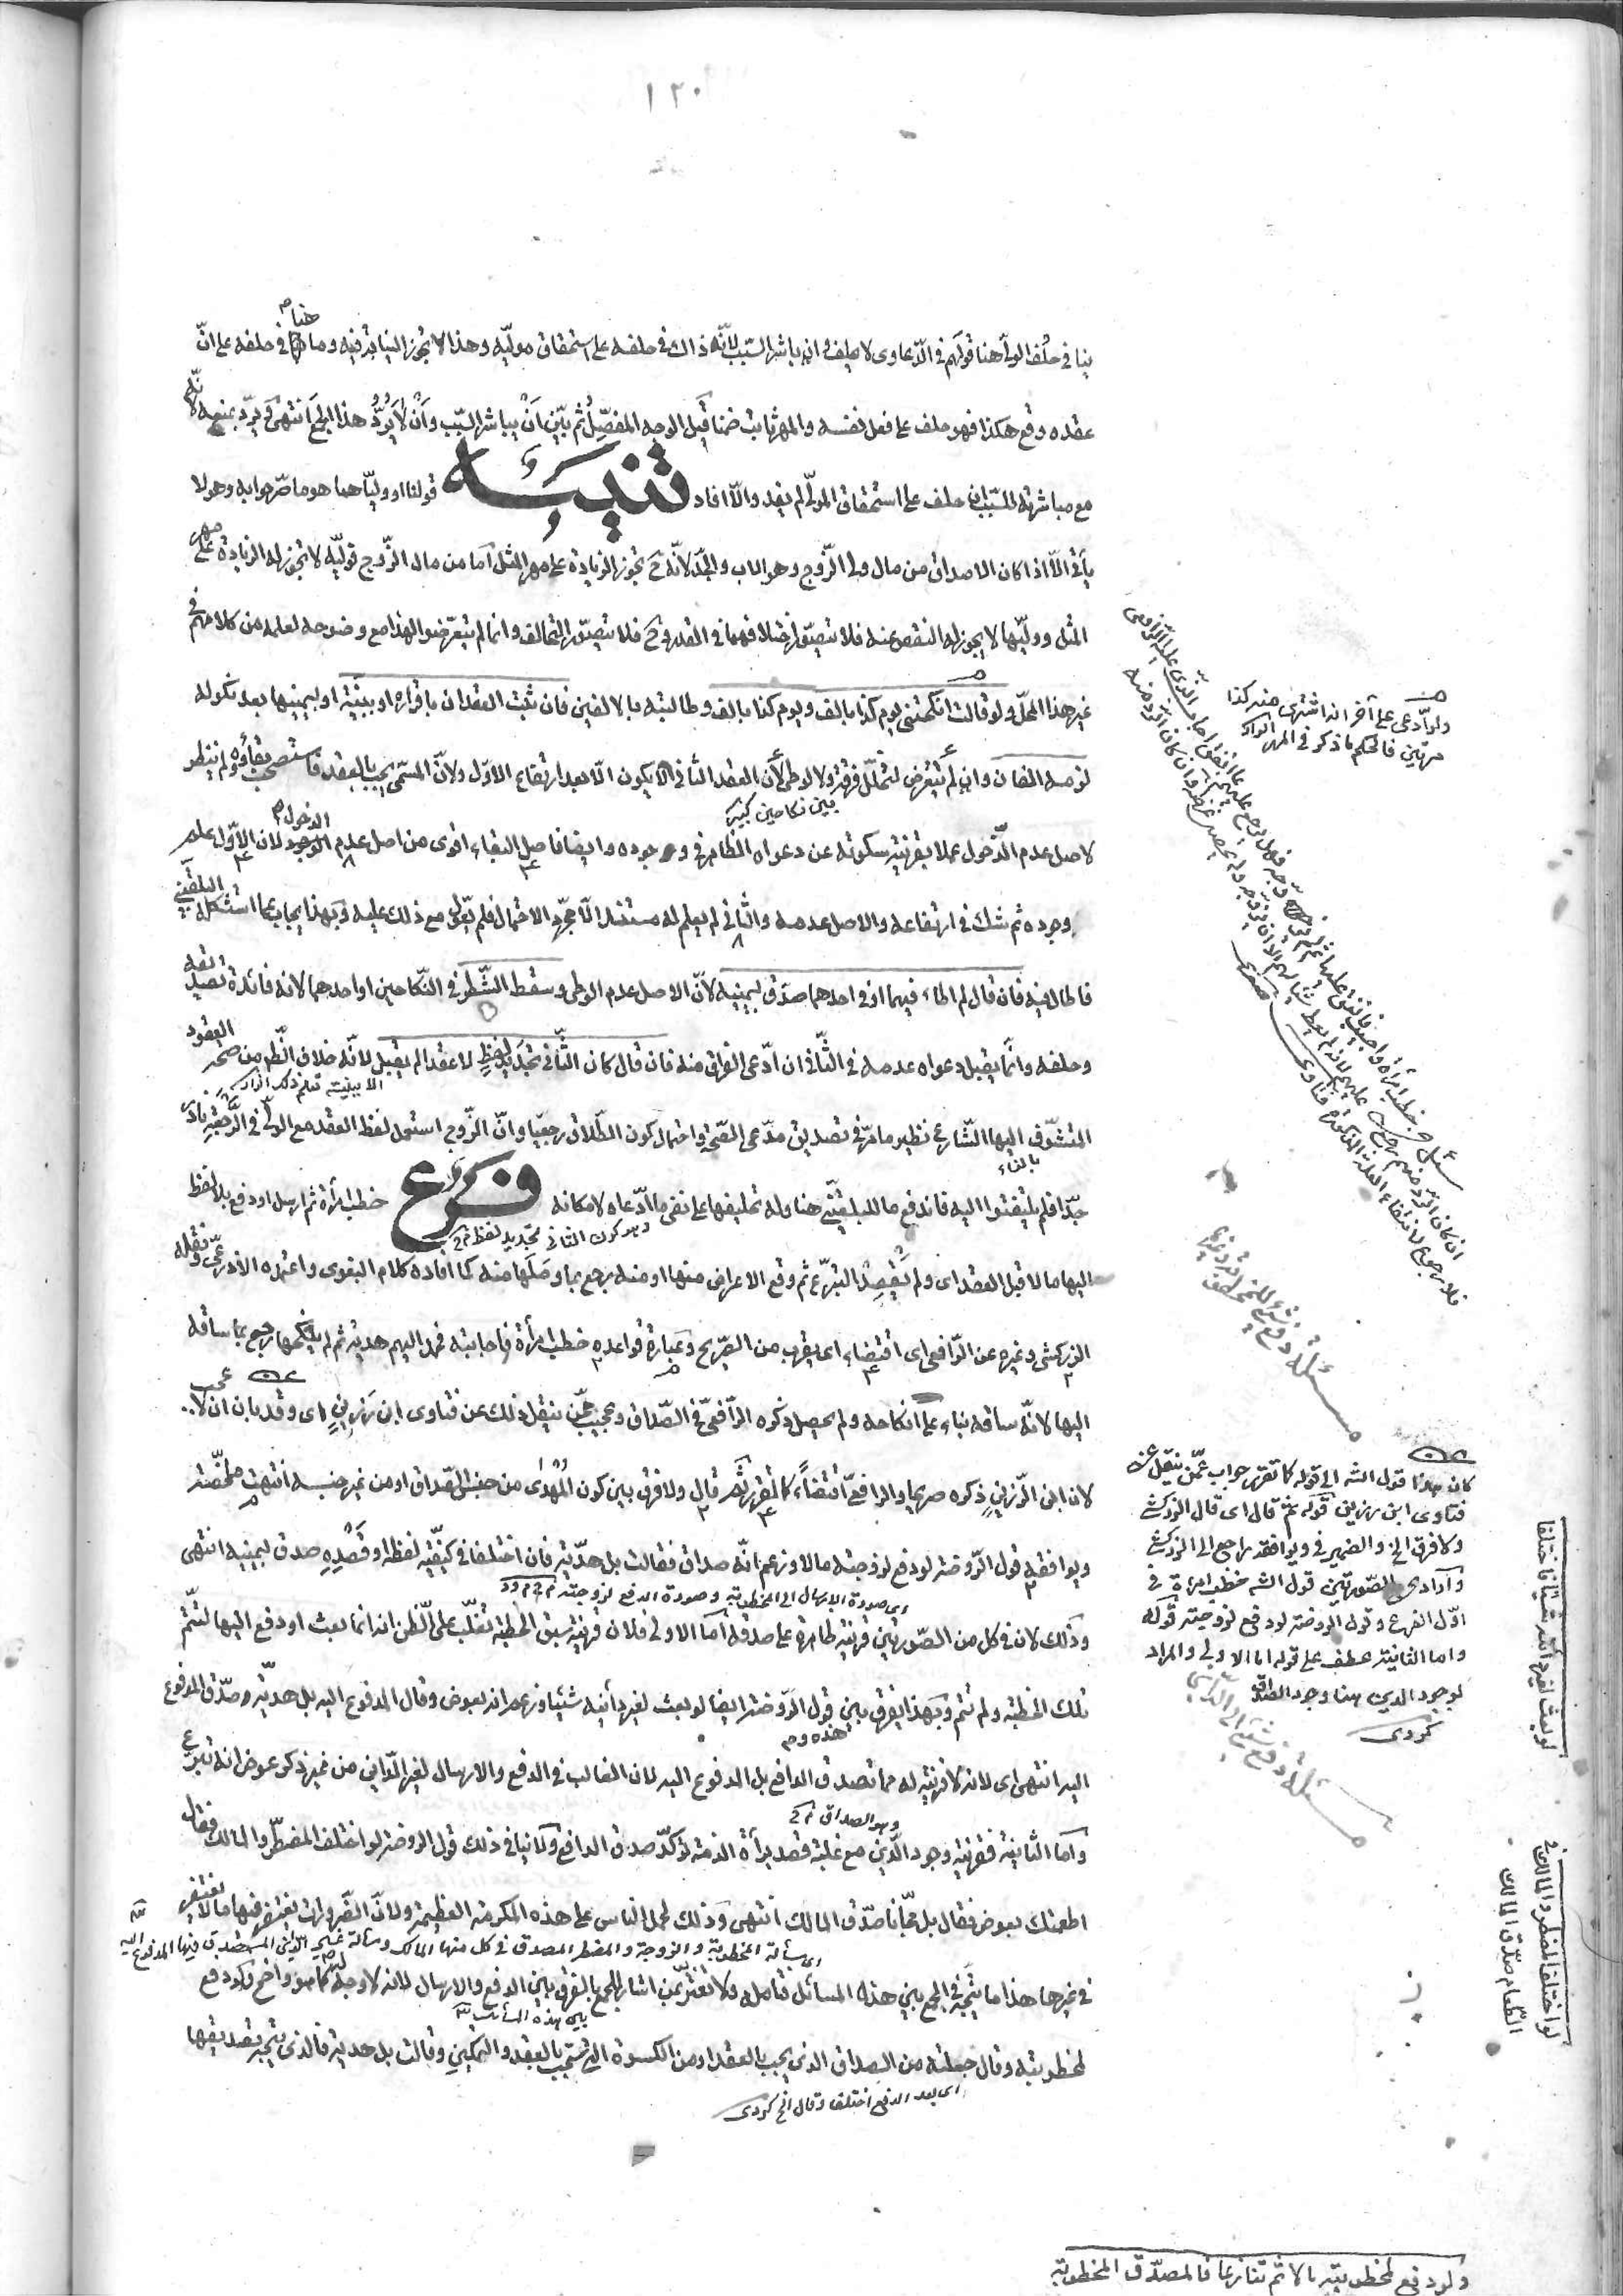 ١٢٠
ينافي حلف الولي هنا قولهم في الدعاوى لا يحلف وان باشر السبب لانّه ذاك في حلفه على استحقاق موليّه وهذا لا تجوز النيابة فيه وما هنا في حلفه على انّ
عقده وقع هكذا فهو حلف على فعل نفسه والمهر ثابت ضمنا قيل الوجه المفصّل ثم بين ان يباشر السّبب وان لا يردّ هذا الجمع انتهى ويردّ بمنعه لانّه
مع مباشرته للسّبب ان حلف على استحقاق المولّى لم يفد والّا افاد تنبيه قولنا او وليّاهما هو ما صرّحوا به وهو لا
يأتي الّا اذا كان الاصداق من مال ولي الزّوج وهو الاب والجدّ لانّه ح تجوز الزيادة على مهر المثل أما من مال الزّوج فوليّه لا تجوز له الزيادة على مهر
المثل ووليّها لا يجوز له النقص عنه فلا يتصوّر اختلافهما في القدر وح فلا يتصوّر التحالف وانما لم يتعرّضوا لهذا مع وضوحه لعلمه من كلامهم في
غير هذا المحلّ ولو قالت انكحتني يوم كذا بالف ويوم كذا بالف وطالبته بالالفين فان ثبت العقدان باقراره او ببيّنة او بيمينها بعد نكوله
لزمه الفان وان لم تتعرض لتخلّل فرقة ولا وطى لأن العقد الثاني لا يكون الّا بعد ارتفاع الاوّل ولانّ المسمّى يجب بالعقد فاستصحب بقاؤه ولم ينظر
بين نكاحين كبير
لاصل عدم الدّخول عملا بقرينة سكوته عن دعواه الظاهر في وجوده وايضا فاصل البقاء اقوى من اصل عدم الدخول لان الأوّل علم
وجوده ثم شك في ارتفاعه والاصل عدمه والثاني لم يعلم له مستند الّا مجرّد الاحتمال فلم يقو مع ذلك عليه وبهذا يجاب عما استشكله البلقيني
فاطال فيه فان قال لم اطاء فيهما او في احدهما صدّق بيمينه لأنّ الاصل عدم الوطى وسقط الشّطر في النّكاحين او احدهما لانه فائدة تصديقه
وحلفه وانّما يقبل دعواه عدمه في الثّاني ان ادّعى الفراق منه فان قال كان الثّاني تجديد لفظ لا عقدا لم يقبل لانّه خلاف الظّهر من صحة العقود
المتشوّف اليها الشّارع نظير ما مرّ في تصديق مدّعي الصّحة واحتمال كون الطّلاق رجعيّا وانّ الزّوج استعمل لفظ العقد مع الولي في الرّجعة نادر
بالفاء
جدّا فلم يلتفتوا اليه فاندفع ما للبلقيني هنا وله تحليفها على نفى ما ادّعاه لامكانه فرع خطب امرأة ثم ارسل او دفع بلا لفظ
وهو كون الثاني تجديد لفظ
اليها مالا قبل العقد اى ولم يقصد التبرّع ثم وقع الاعراض منها او منه رجع بما وصلها منه كما افاده كلام البغوى واعتمده الاذرعي ونقله
الزركشى وغيره عن الرّافعى اى اقتضاء اى يقرب من الصّريح وعبارة قواعده خطب امرأة فاجابته فحمل اليهم هدية ثم لم ينكحها رجع بما ساقه
اليها لانّه ساقه بناء على انكاحه ولم يحصل ذكره الرّافعى في الصّداق وعجيب ممّن ينقل ذلك عن فتاوى ابن رزين اى وقد بان ان لا عجب
لان ابن الرّزين ذكره صريحا والرافعى اقتضاءً كما تقرر ثم قال ولا فرق بين كون المهدى من جنس الصّداق او من غير جنسه انتهت ملخّصة
ويوافقه قول الرّوضة لو دفع لزوجته مالا وزعم انّه صداق فقالت بل هديّة فان اختلفا في كيفيّة لفظه او قصده صدق بيمينه انتهى
اى صورة الارسال الى المخطوبة وصورة الدفع لزوجته
وذلك لان في كل من الصّورتين قرينة ظاهرة على صدقه أما الاولى فلان قرينة سبق الخطبة تغلّب على الظّن انه انما بعث او دفع اليها لتتمّ
تلك الخطبة ولم تتم وبهذا يفرق بين قول الرّوضة ايضا لو بعث لغير دائنه شيئا وزعم انه بعوض وقال المدفوع اليه بل هديّة صدّق المدفوع
هذه وم
اليه انتهى اى لانه لا قرينة له مما تصدق الدافع بل المدفوع اليه لان الغالب في الدفع والارسال لغير الدّائن من غير ذكر عوض انه تبرّع
وهو الصداق
وأما الثانية فقرينة وجود الدّين مع غلبة قصد برأة الذمة تؤكّد صدق الدافع ولا ينافي ذلك قول الروضة لو اختلف المضطرّ والمالك فقال
اطعمتك بعوض فقال بل مجّانا صدّق المالك انتهى وذلك لحمل الناس على هذه المكرمة العظيمة ولانّ الضّرورات يغتفر فيها ما لا يغتفر
في غيرها هذا ما يتّجه في الجمع بين هذه المسائل فتأمله ولا تغتر بمن اشار للجمع بالفرق بين الدفع والارسال لانه لا وجه له كما هو واضح ولو دفع
بين هذه المسائل
لمخطوبته وقال جعلته من الصداق الذى يجب بالعقد او من الكسوة التي تجب بالعقد والتمكين وقالت بل هدية فالذى يتجه تصديقها
اى بعد الدفع اختلفا وقال الخ كردى
ولو ادّعى على آخر انه اشترى منه كذا
مرتين فالحكم ما ذكر في المهر
كان هذا قول الشه الى قوله كما تقرر جواب عمّن ينقل عن
فتاوى ابن رزين قوله ثم قال اى قال الزركشى
ولا فرق الخ والضمير في ويوافقه راجع الى الزركشى
الصّورتين قول الشه خطب امرأة في
اوّل الفرع وقول الروضة لو دفع لزوجته قوله
واما الثانية عطف على قوله اما الاولى والمراد
لوجود الدين هنا وجود الصداق
كردى
لو بعث لغير دائنه شيئا فاختلفا
لو اختلف المضطر والمالك في
الطعام صدّق المالك
ولو دفع لمخطوبته مالا ثم تنازعا فالمصدّق المخطوبة